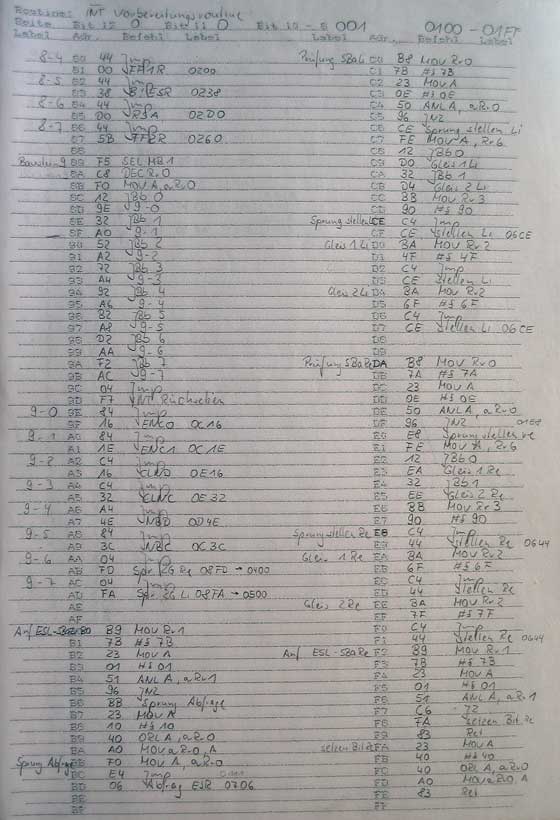 Routine: INT Vorbereitungsroutine
Seite Bit 12 0 Bit 11 0 Bit 10 - 8 001 0100 - 01FF
Label Adr. Befehl Label Label Adr. Befehl Label
8-4 80 44 Jmp
81 00 0200
8-5 82 44 Jmp
83 38 0238
8-6 84 44 Jmp
85 D0 02D0
8-7 86 44 Jmp
87 5B 0260
88
89 F5 SEL MB1
8A C8 DEC Rr0
8B F0 MOV A, aRr0
8C 12 JBb 0
8D 9E 9-0
8E 32 JBb 1
8F A0 9-1
90 52 JBb 2
91 A2 9-2
92 72 JBb 3
93 A4 9-3
94 92 JBb 4
95 A6 9-4
96 B2 JBb 5
97 A8 9-5
98 D2 JBb 6
99 AA 9-6
9A F2 JBb 7
9B AC 9-7
9C 04 Jmp
9D F7 INT Rückschreiben
9-0 9E 84 Jmp
9F 16 ENC0 0C16
9-1 A0 84 Jmp
A1 1E ENC1 0C1E
9-2 A2 C4 Jmp
A3 16 0E16
9-3 A4 C4 Jmp
A5 32 0E32
9-4 A6 A4 Jmp
A7 4E 0D4E
9-5 A8 84 Jmp
A9 3C 0C3C
9-6 AA 04 Jmp
AB FD Spr. ZG Re 08FD → 0400
9-7 AC 04 Jmp
AD FA Spr. ZG Li 08FA → 0500
AE
AF
B0 B9 MOV Rr1
B1 7B #§ 7B
B2 23 MOV A
B3 01 #§ 01
B4 51 ANL A, aRr1
B5 96 JNZ
B6 BB Sprung Abfrage
B7 23 MOV A
B8 10 #§ 10
B9 40 ORL A, aRr0
BA A0 MOV aRr0, A
Sprung Abfrage BB F0 MOV A, aRr0
BC E4 Jmp
BD 06 Abfrag ESR 0706
BE
BF
Prüfung SBaLi C0 B8 MOV Rr0
C1 7B #§ 7B
C2 23 MOV A
C3 0E #§ 0E
C4 50 ANL A, aRr0
C5 96 JNZ
C6 CE Sprung stellen Li
C7 FE MOV A, Rr6
C8 12 JBb0
C9 D0 Gleis 1 Li
CA 32 JBb1
CB D4 Gleis 2 Li
CC BB MOV Rr3
CD 90 #§ 90
Sprung stellen CE C4 Jmp
CF CE stellen Li 06CE
Gleis 1 Li D0 BA MOV Rr2
D1 4F #§ 4F
D2 C4 Jmp
D3 CE stellen Li
Gleis 2 Li D4 BA MOV Rr2
D5 6F #§ 6F
D6 C4 Jmp
D7 CE stellen Li 06CE
D8
D9
Prüfung SBaRe DA B8 MOV Rr0
DB 7A #§ 7A
DC 23 MOV A
DD 0E #§ 0E
DE 50 ANL A, aRr0
DF 96 JNZ 01E8
E0 E8 Sprung stellen re
E1 FE MOV A, Rr6
E2 12 JBb0
E3 EA Gleis 1 Re
E4 32 JBb1
E5 EE Gleis 2 Re
E6 BB MOV Rr3
E7 90 #§ 90
Sprung stellen Re E8 C4 Jmp
E9 44 stellen Re 0644
Gleis 1 Re EA BA MOV Rr2
EB 6F #§ 6F
EC C4 Jmp
ED 44 stellen Re
Gleis 2 Re EE BA MOV Rr2
EF 7F #§ 7F
F0 C4 Jmp
F1 44 stellen Re 0644
Anf ESL-SBaRe F2 B9 MOV Rr1
F3 7B #§ 7B
F4 23 MOV A
F5 01 #§ 01
F6 51 ANL A, aRr1
F7 C6 JZ
F8 FA setzen Bit Re
F9 83 Ret
setzen Bit Re FA 23 MOV A
FB 40 #§ 40
FC 40 ORL A, aRr0
FD A0 MOV aRr0, A
FE 83 Ret
FF